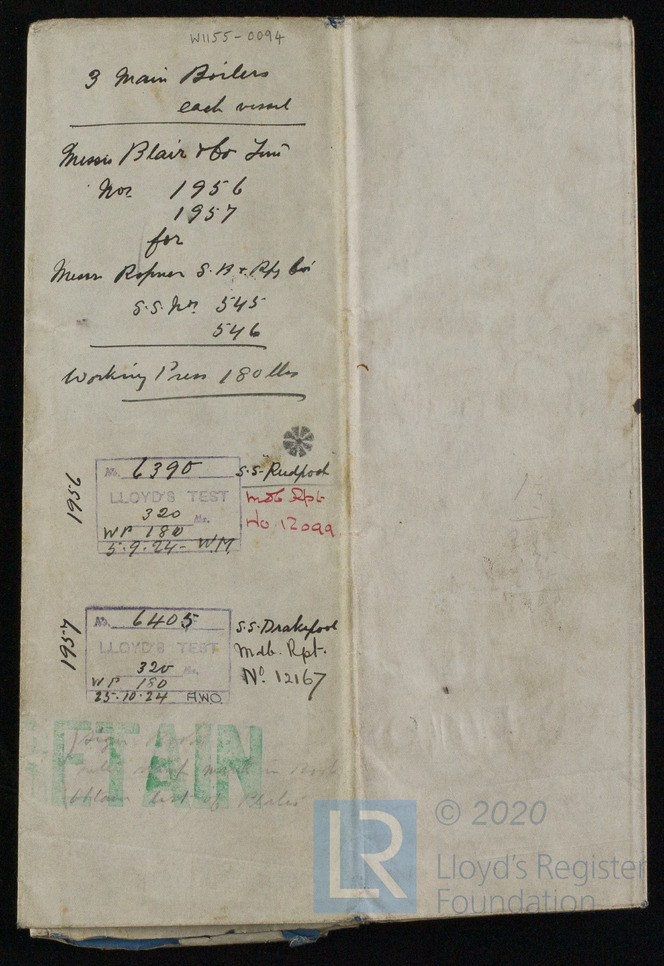 W1155-0094
3 Main Boilers
each vessel
Messrs Blair & Co Lim
Nos 1956
1957
for
Messrs Ropner S.B & Rfg Co
S.S. Nos 545
546
Working Press 180 lbs
1956
No. 6390
LLOYD'S TEST
320 lbs.
WP 180
5.9.24 - W.M.
S.S. Rudpool
Mdb Rpt
No 12099
1957
No. 6405
LLOYD'S TEST
320 lbs.
WP 180
25.10.24 A.W.O.
S.S. Drakepool
Mdb. Rpt.
No. 12167
RETAIN
in Book
list of Plates
LR
© 2020
Lloyd's Register
Foundation